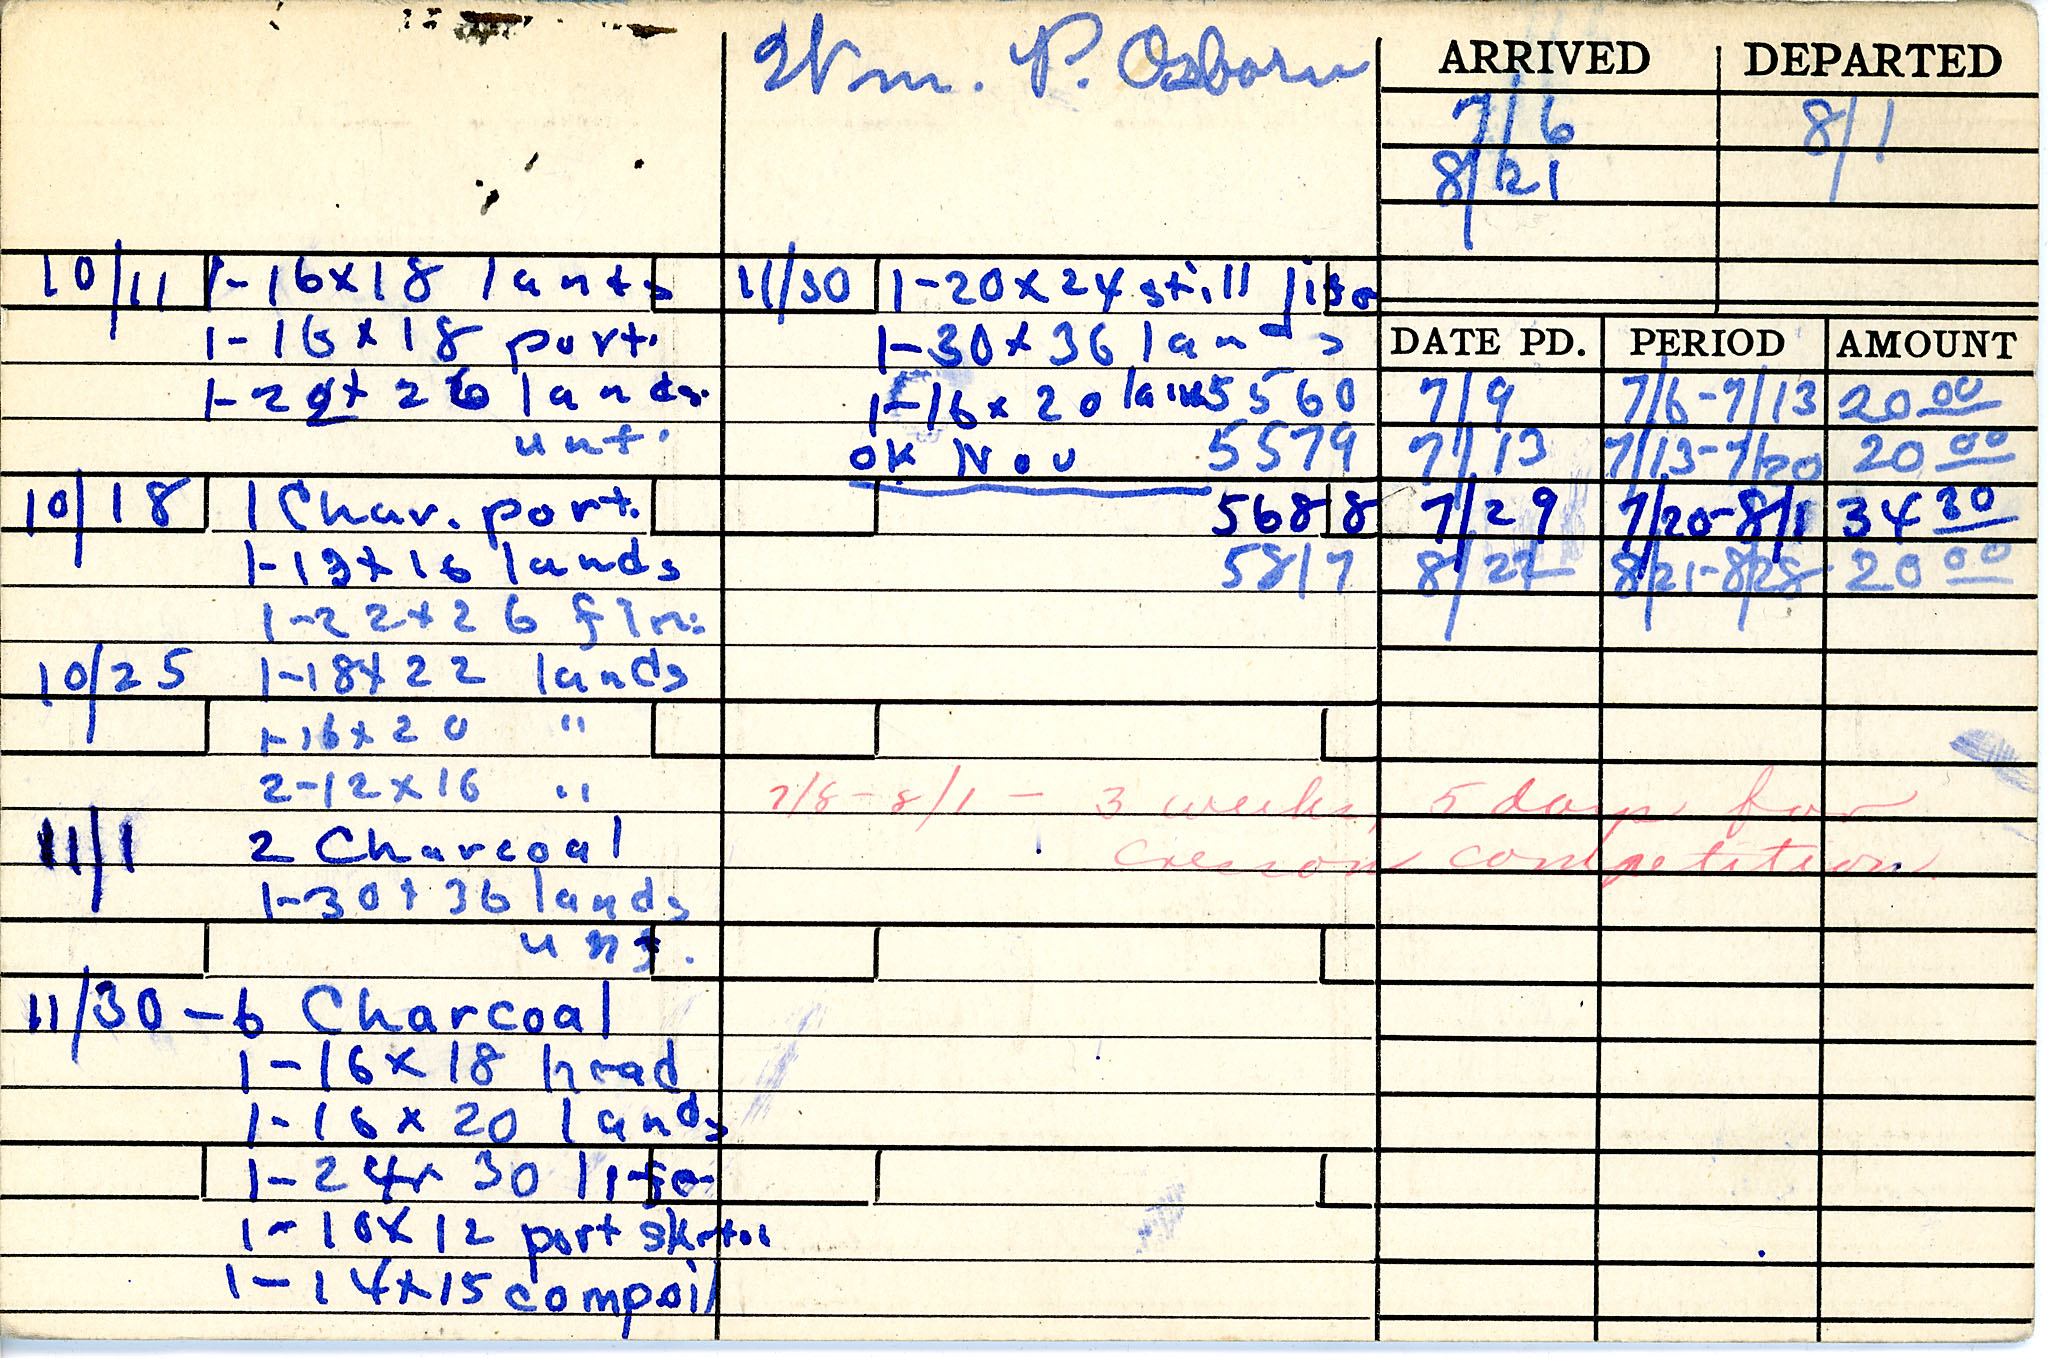 Wm. P. Osborn
ARRIVED DEPARTED
7/6 8/1
8/21
10/11 1-16x18 lands
1-16x18 port.
1-20x26 lands.
unf.
10/18 1 Char. port.
1-13x16 lands
1-22x26
10/25 1-18x22 lands
1-16x20 "
2-12x16 "
11/1 2 Charcoal
1-30x36 lands
unf.
11/30-6 Charcoal
1-16x18 head
1-16x20 lands
1-24x30 life
1-10x12 port
1-14x15
11/30 1-20x24 still life
1-30x36 lands
1-16x20 lands
OK Nov
DATE PD. PERIOD AMOUNT
5560 7/9 7/6-7/13 20 00
5579 7/13 7/13-7/20 20 00
5688 7/29 7/20-8/1 34 30
5817 8/22 8/21-8/28 20 00
7/8-8/1 - 3 weeks, 5 days for
cresson competition.